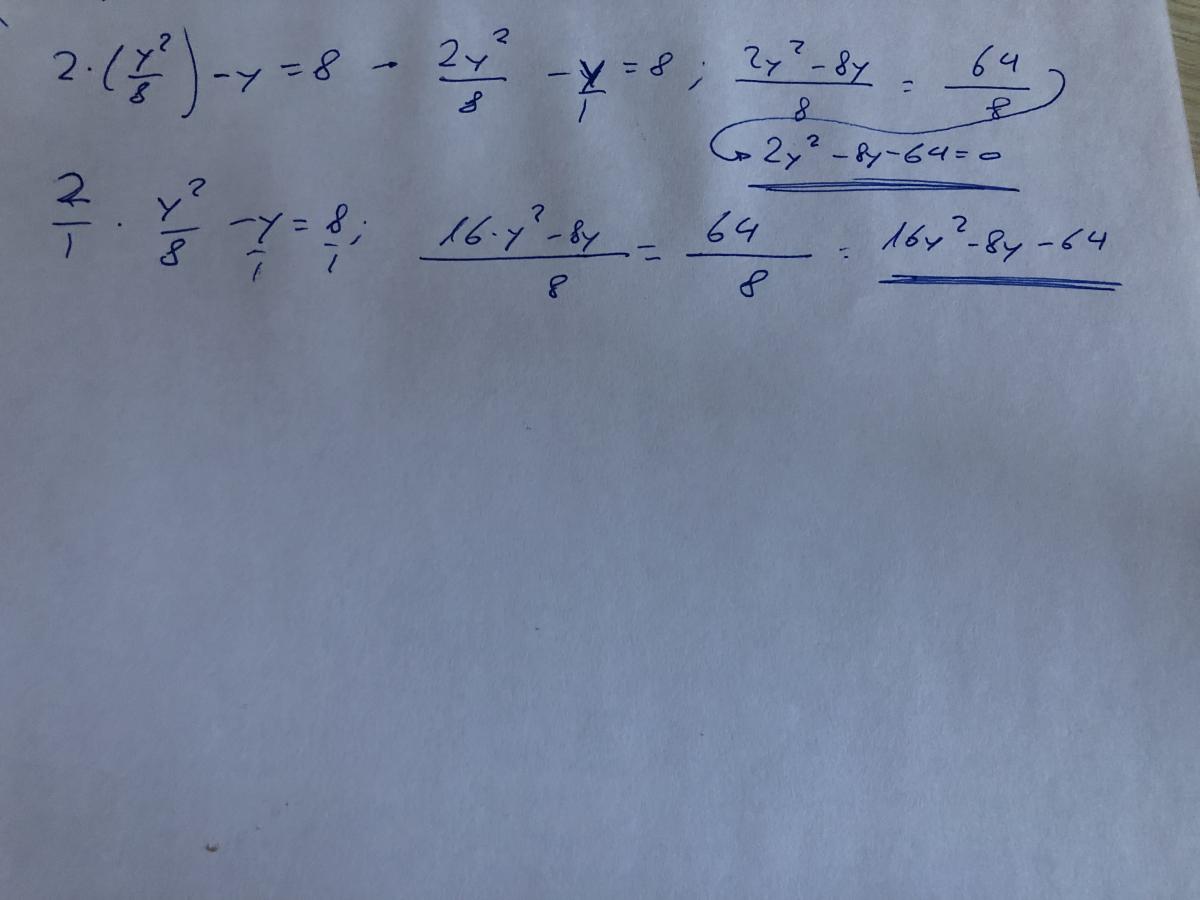 2·(y²/8) - y = 8 - 2y²/8 - y/1 = 8 ; 2y² - 8y/8 = 64/8
2y² - 8y - 64 = 0
2/1 · y²/8 - y/1 = 8/1 ; 16·y² - 8y/8 = 64/8 : 16y² - 8y - 64